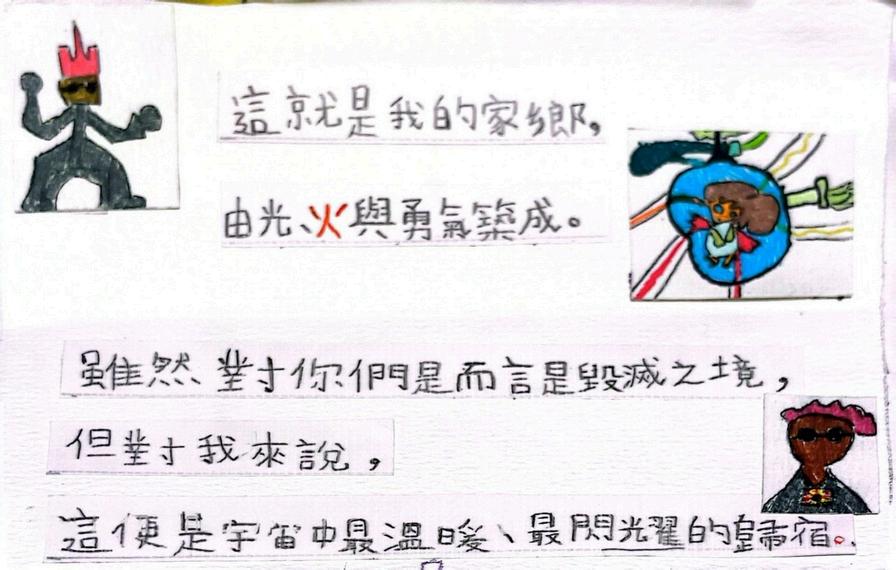 這就是我的家鄉，
由光、火與勇氣築成。
雖然對你們是而言是毀滅之境，
但對我來說，
這便是宇宙中最溫暖、最閃光耀的歸宿。